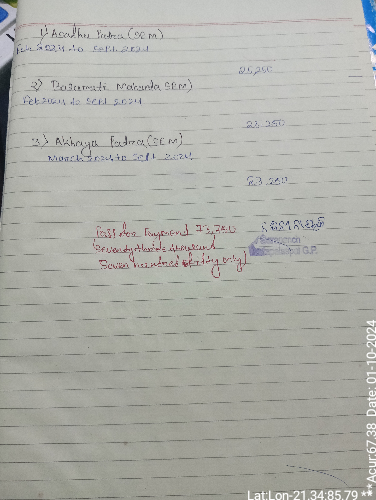 1) Aadhu Patra (SEM)
Feb 2024 to Sept 2024
25,250
2) Basamati Makunda SEM)
Feb 2024 to Sept 2024
25 250
3) Akhaya Patra (SEM)
March 2024 to Sept 2024
23,250
Pass for Payment Rs, 73,750
Seventy three thousand
Seven hundred fifty only)
G.P.
Lat:Lon-21.34:85.79 ***Acur:67.38 Date: 01-10-2024